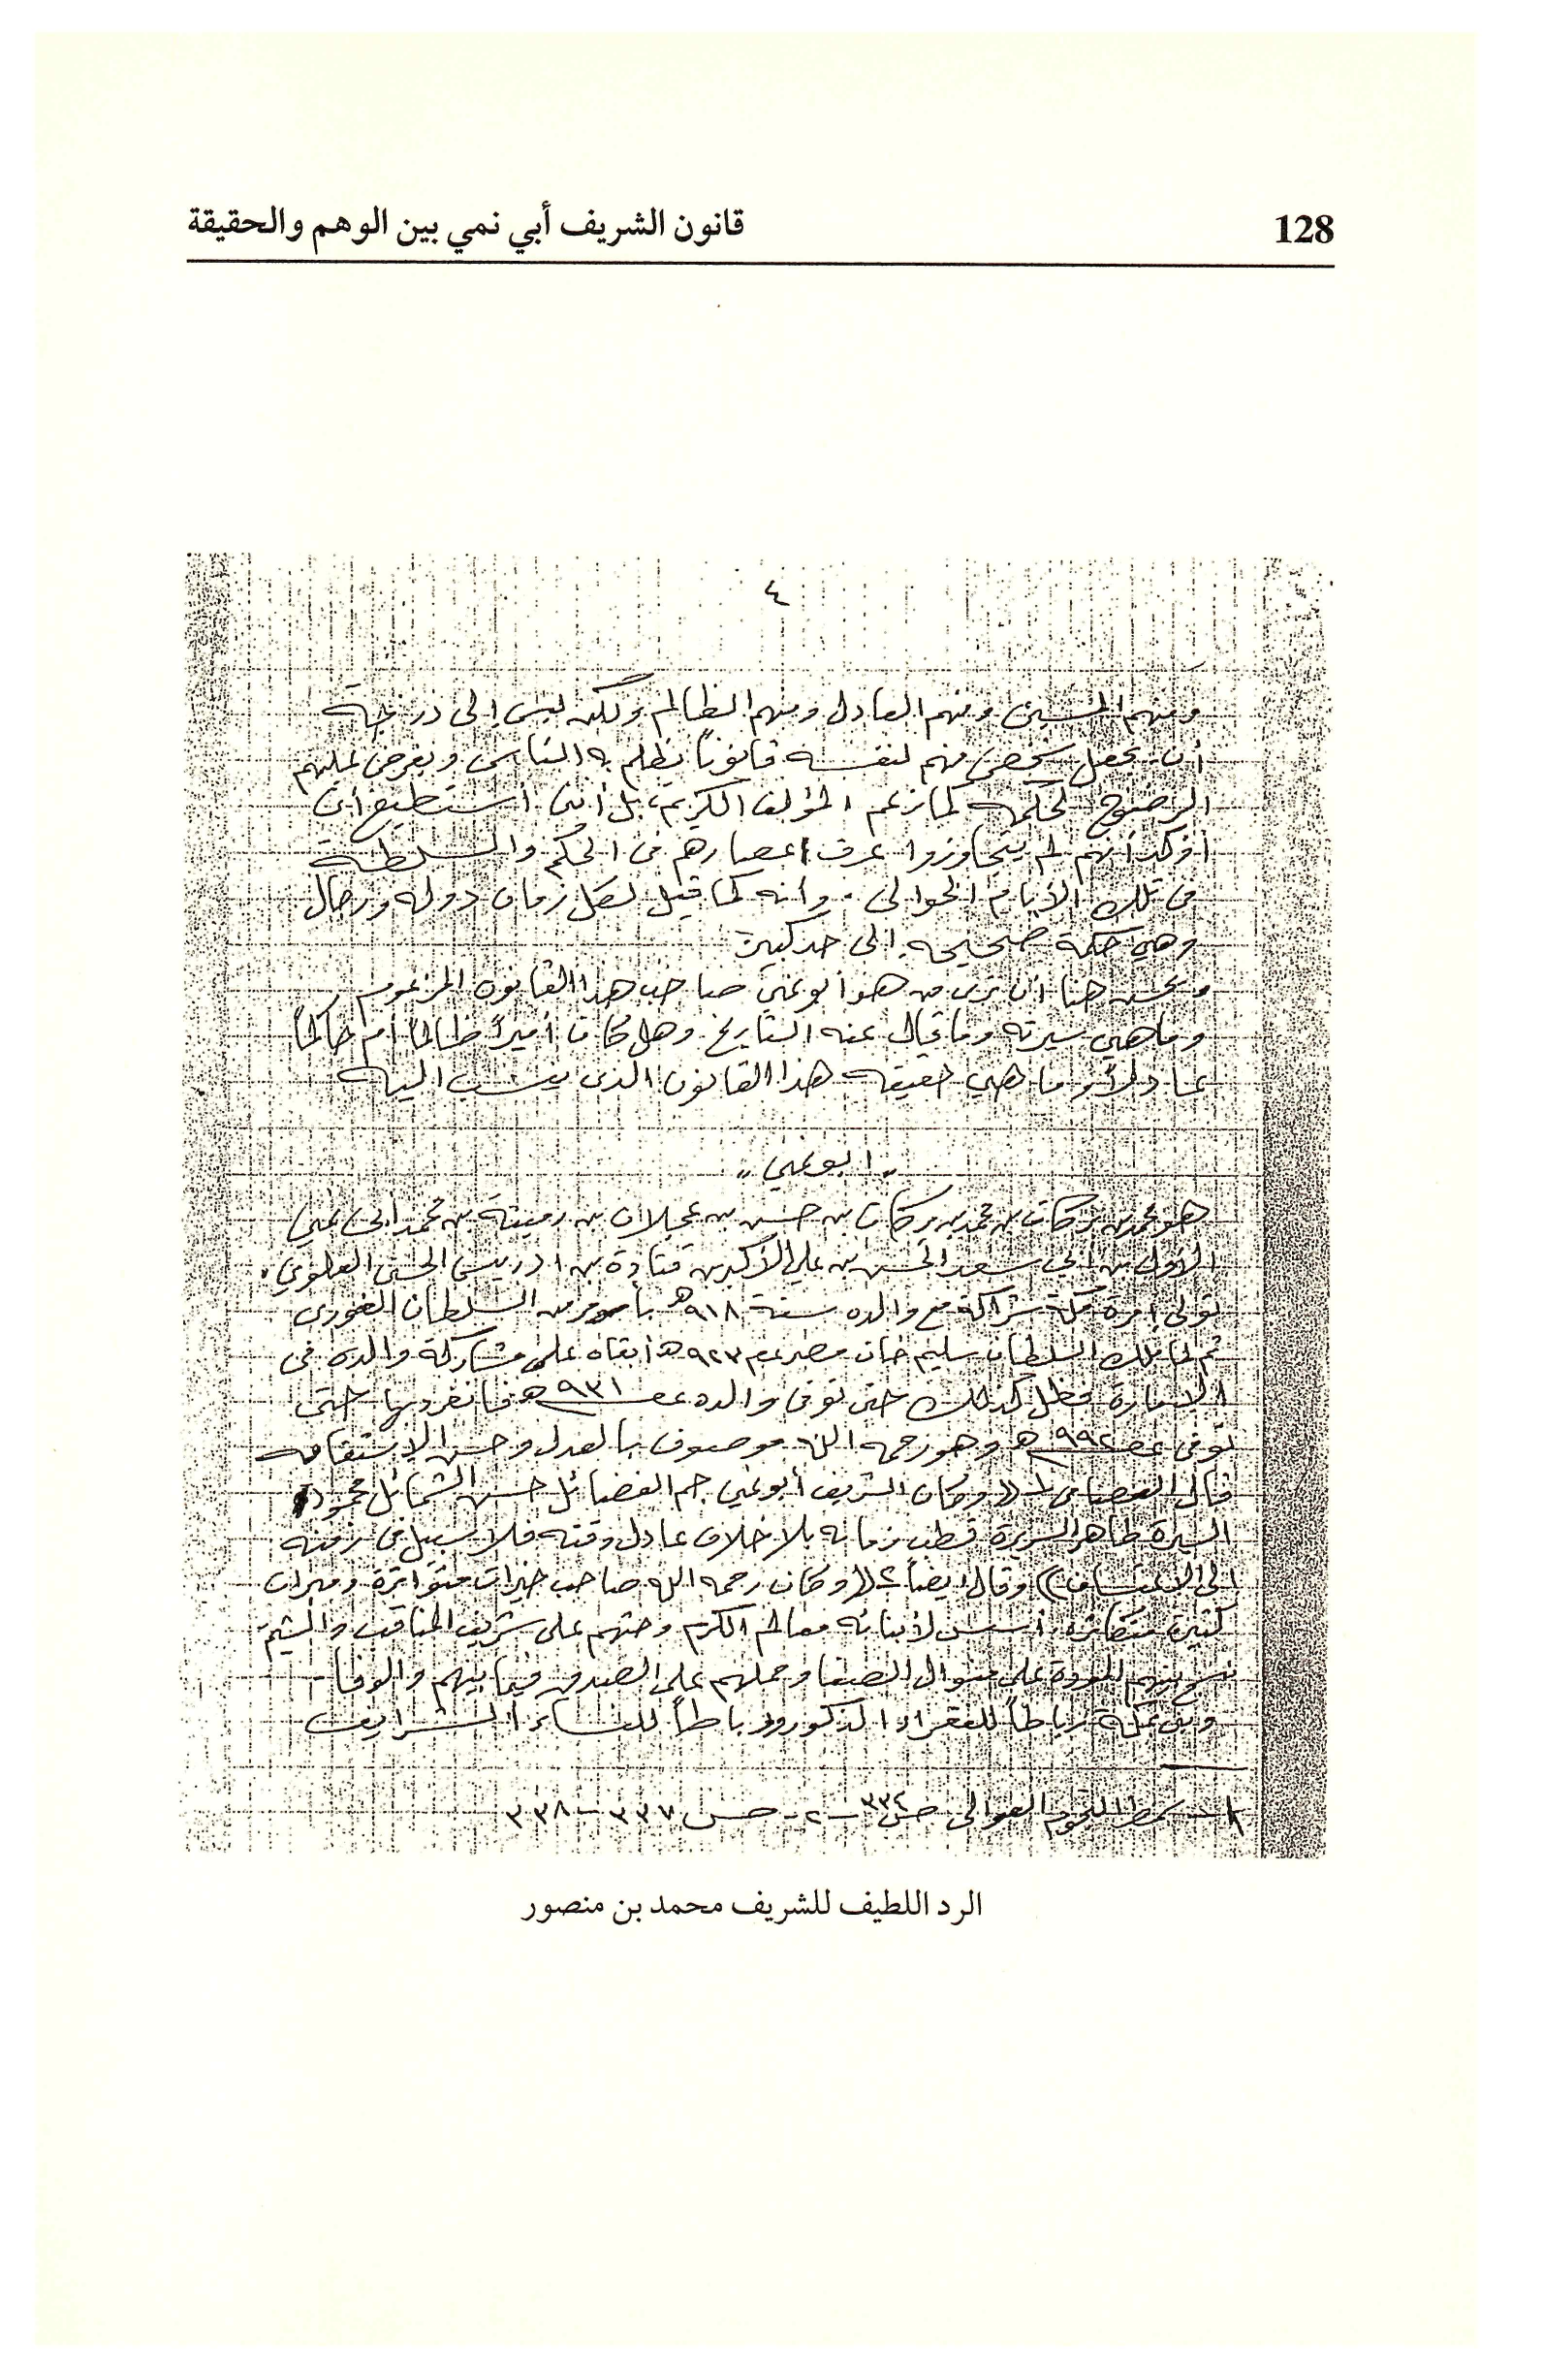 128
قانون الشريف أبي نمي بين الوهم والحقيقة
٤
ومنهم المسيئ ومنهم العادل ومنهم الظالم ولكن ليس إلى درجة
أن يجعل شخص منهم لنفسه قانوناً يظلم به الناس ويفرض عليهم
الرضوخ لحكمه كما زعم المؤلف الكريم، بل أنني استطيع أن
أؤكد أنهم لم يتجاوزوا عرف اعصارهم في الحكم والسلطة
في تلك الأيام الخوالى . وأنه كما قيل لكل زمان دولة ورجال
وهي حكمة صحيحه إلى حد كبير
ويحسن هنا أن نرى من هو أبو نمي صاحب هذا القانون المزعوم
وما هي سيرته وما قال عنه التاريخ وهل كان أميراً ظالماً أم حاكماً
عادلاً وما هي حقيقه هذا القانون الذى ينسب اليه
" ابو نمي "
هو محمد بن بركات بن محمد بن بركات بن حسن بن عجلان بن رميثة بن محمد ابى نمي
الأول بن أبي سعد الحسن بن علي الأكبر بن قتادة بن ادريس الحسنى العلوي.
تولى إمرة مكة شراكة مع والده سنة ٩١٨هـ بأمر من السلطان الغورى
ثم لما ملك السلطان سليم خان مصر عام ٩٢٣هـ أبقاه على مشاركة والده في
الامارة فظل كذلك حتى توفى والده عام ٩٣١هـ فانفرد بها حتى
توفى عام ٩٩٢هـ وهو رحمه الله موصوف بالعدل وحسن الاستقامه
قال العصامى ١ (( وكان الشريف أبو نمي جم الفضائل حسن الشمائل محمود
السيرة طاهر السريرة قطب زمانه بلا خلاف عادل وقته فلا سبيل في زمنه
إلى الاعتساف )) وقال ايضاً ٢ (( وكان رحمه الله صاحب خيرات متواترة ومبرات
كثيرة متكاثره، أسس لأبنائه معالم الكرم وحثهم على شريف المناقب والشيم
نسج بينهم المودة على منوال الصفا وحملهم على الصدق فيما بينهم والوفا
وبنى بمكة رباطاً للفقراء الذكور ورباطاً للنساء الشرايف
١ - سمط النجوم العوالى ص ٣٣٤ - ٢ - ص ٣٣٧ - ٣٣٨
الرد اللطيف للشريف محمد بن منصور